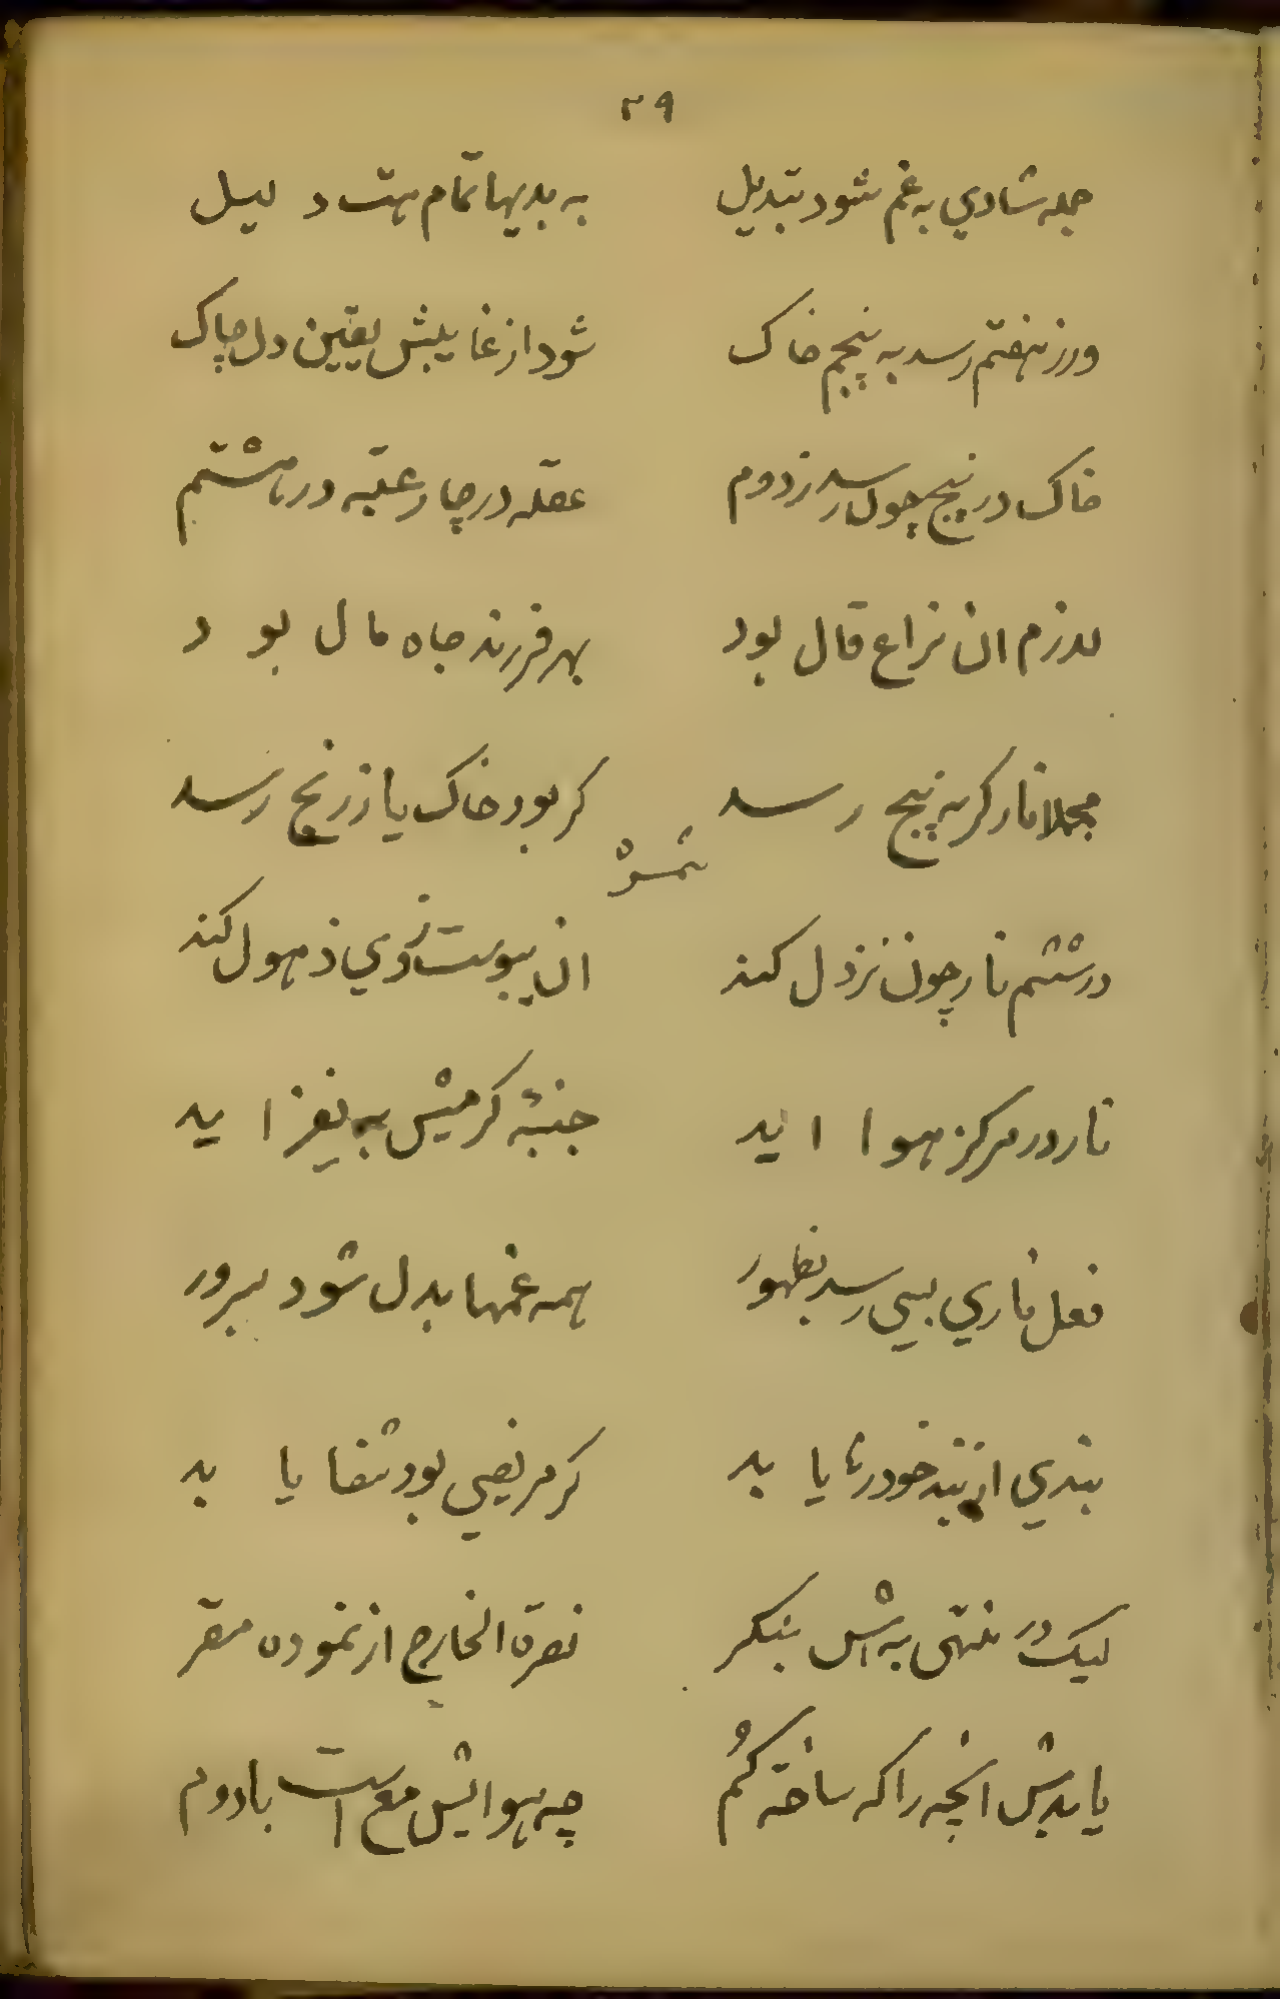 ۲۹
جمله شادي به غم شود تبديل به بديها تمام هست د ليل
ورز هفتم رسد به پنجم خاک شود از غايبش يقين دل چاک
خاک در پنج چون رسد ز دوم عقله در چار عتبه در هشتم
لدزم ان نزاع قال بود بهر فرزند جاه مال بو د
مجملا نار کر به پنج رسد کر بود خاک يا ز رنج رسد
در ششم نار چون نزدل کند ان يبوست زوي ذهول کند
نار در مرکز هوا ايد جنبهٔ کرميش به يفزايد
فعل ناري بسي رسد بظهور همه غمها بدل شود بسرور
بندي از بند خود رها يا بد کر مريضي بود شفا يا بد
ليک در منتهی به اش بنکر نصرة الخارج از نموده مقر
يا بدش انچه را که ساخته کُم چه هوايش مع است با دوم